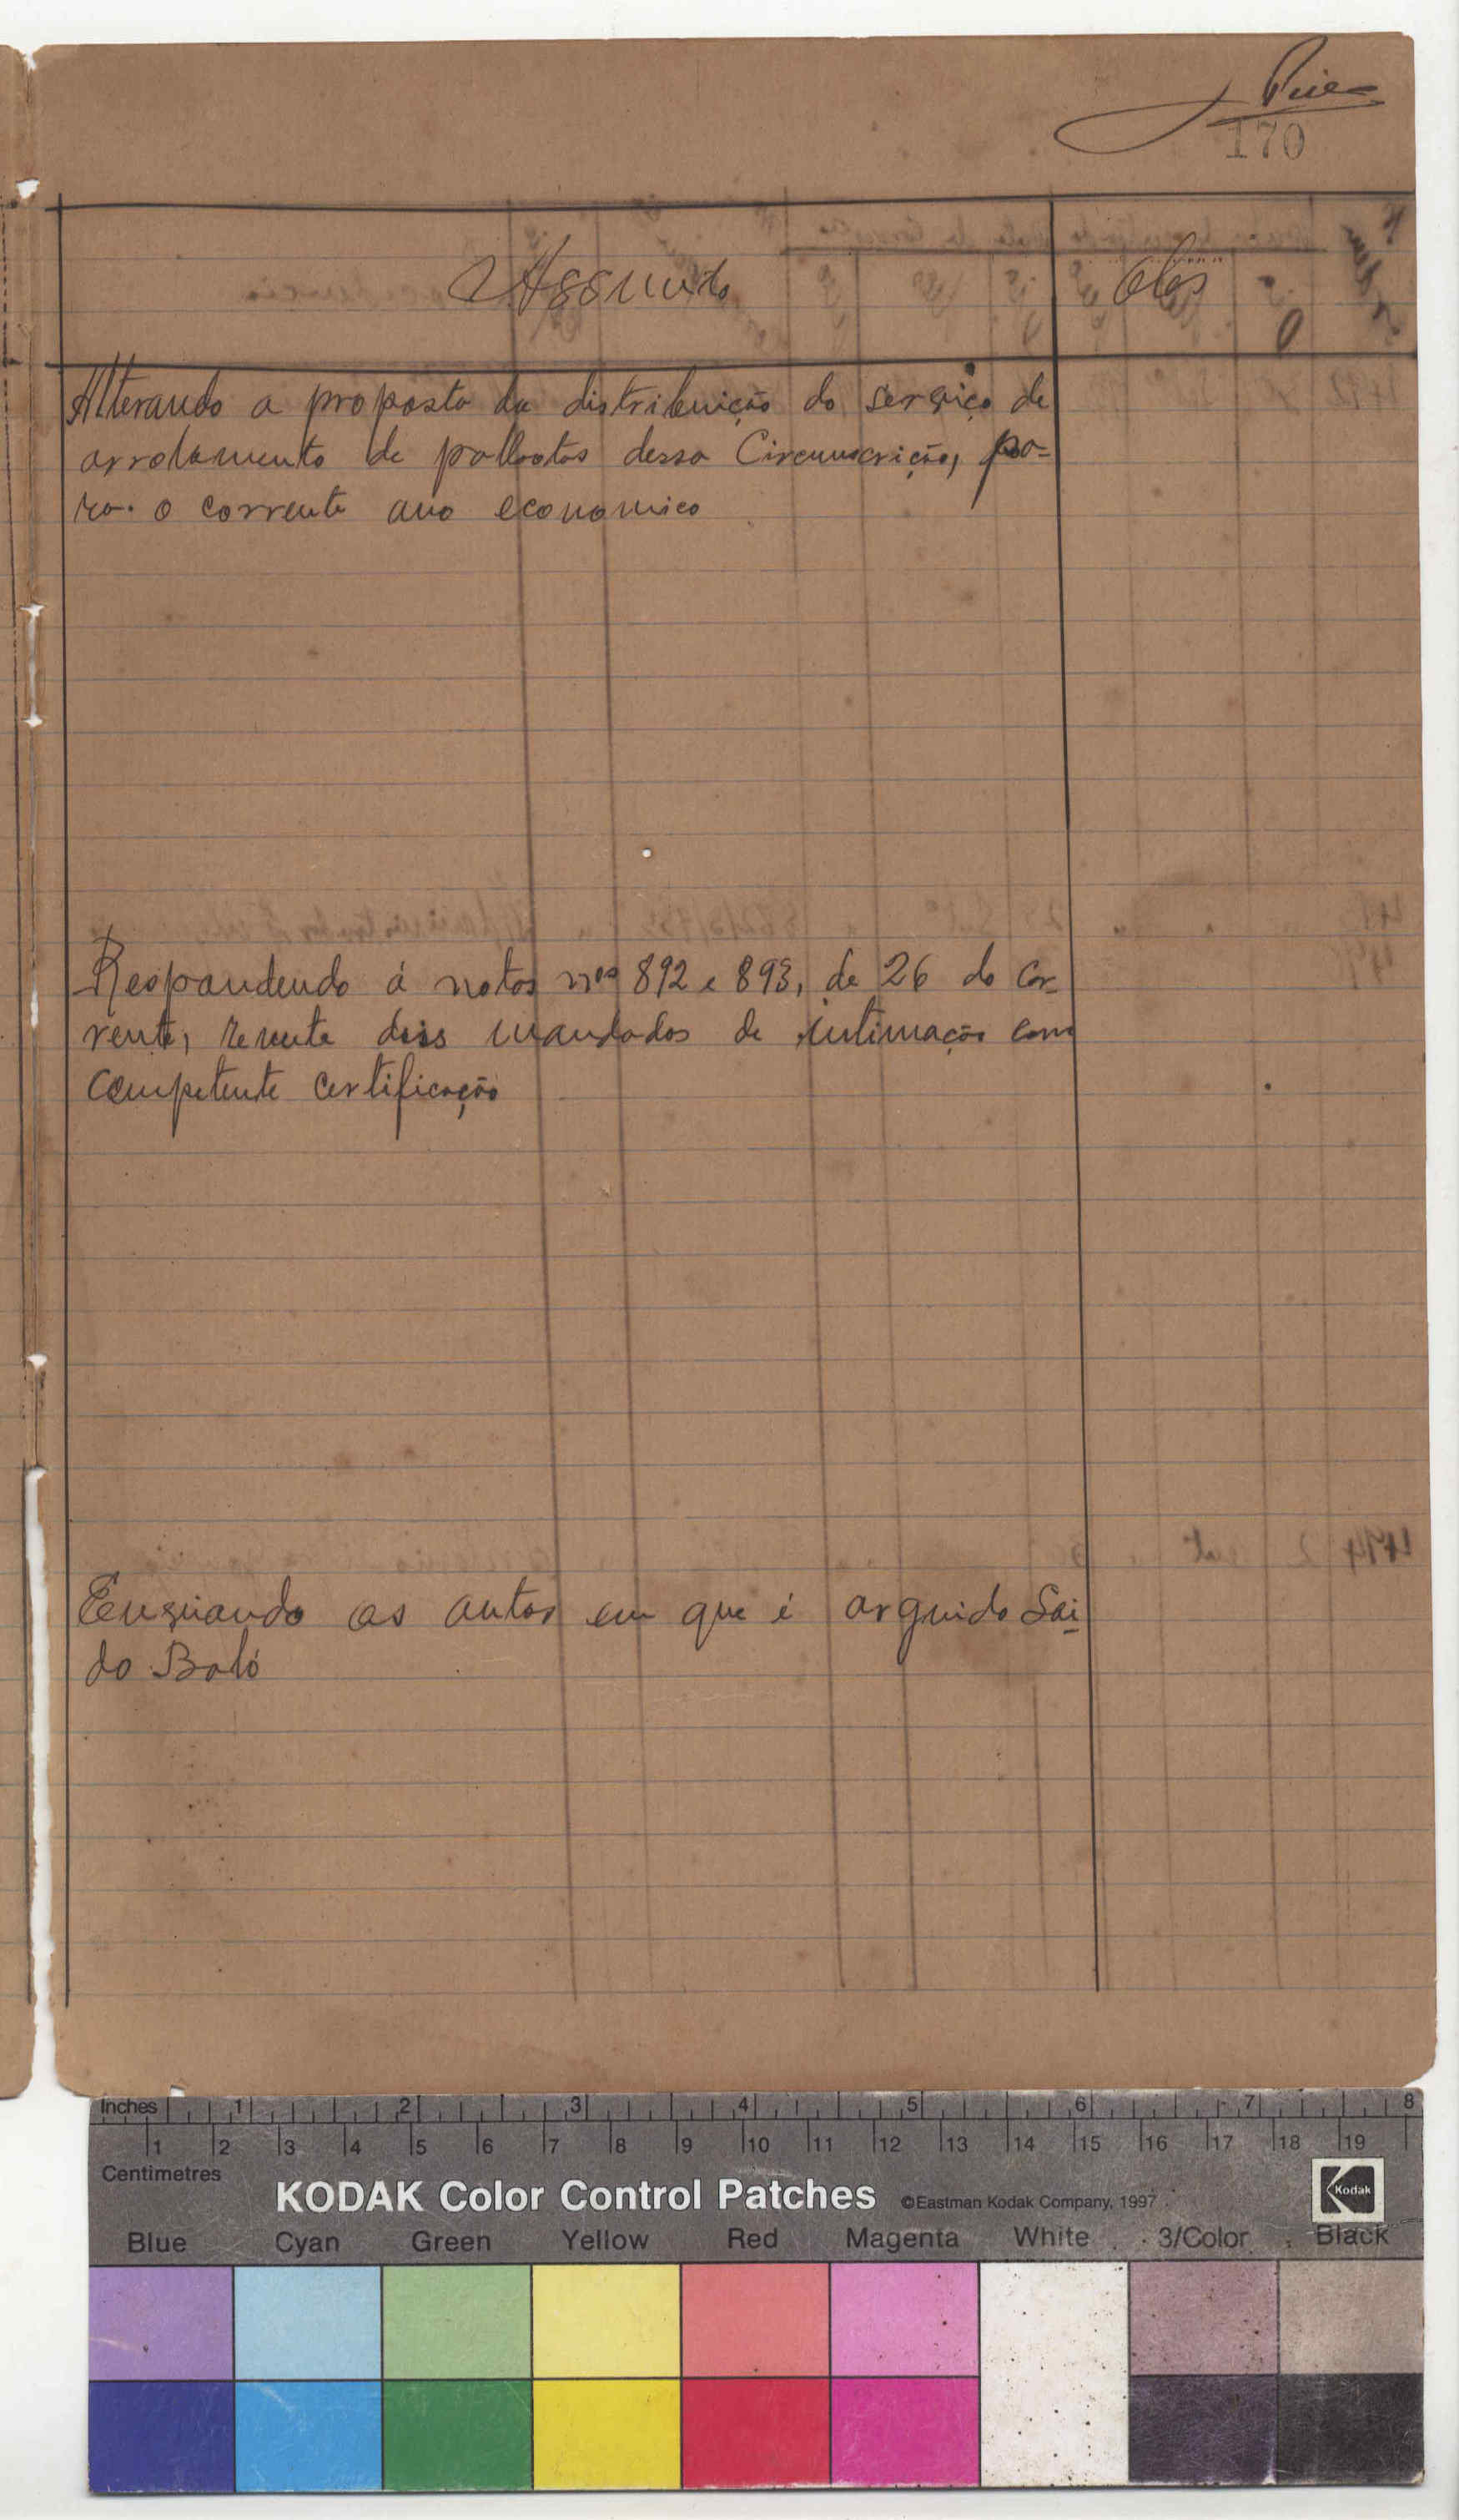 Pires
170
Assunto
Obs
Alterando a proposta da distribuição do serviço de
arrolamento de palhotas dessa Circunscrição, pa-
ra o corrente ano economico
Respondendo á notas nos 892 e 893, de 26 do cor-
rente, remete dois mandados de intimação com
competente certificação
Enviando os autos em que é arguido Sai
do Baló
Inches 1 2 3 4 5 6 7 8
1 2 3 4 5 6 7 8 9 10 11 12 13 14 15 16 17 18 19
Centimetres
KODAK Color Control Patches ©Eastman Kodak Company, 1997 Kodak
Blue Cyan Green Yellow Red Magenta White 3/Color Black